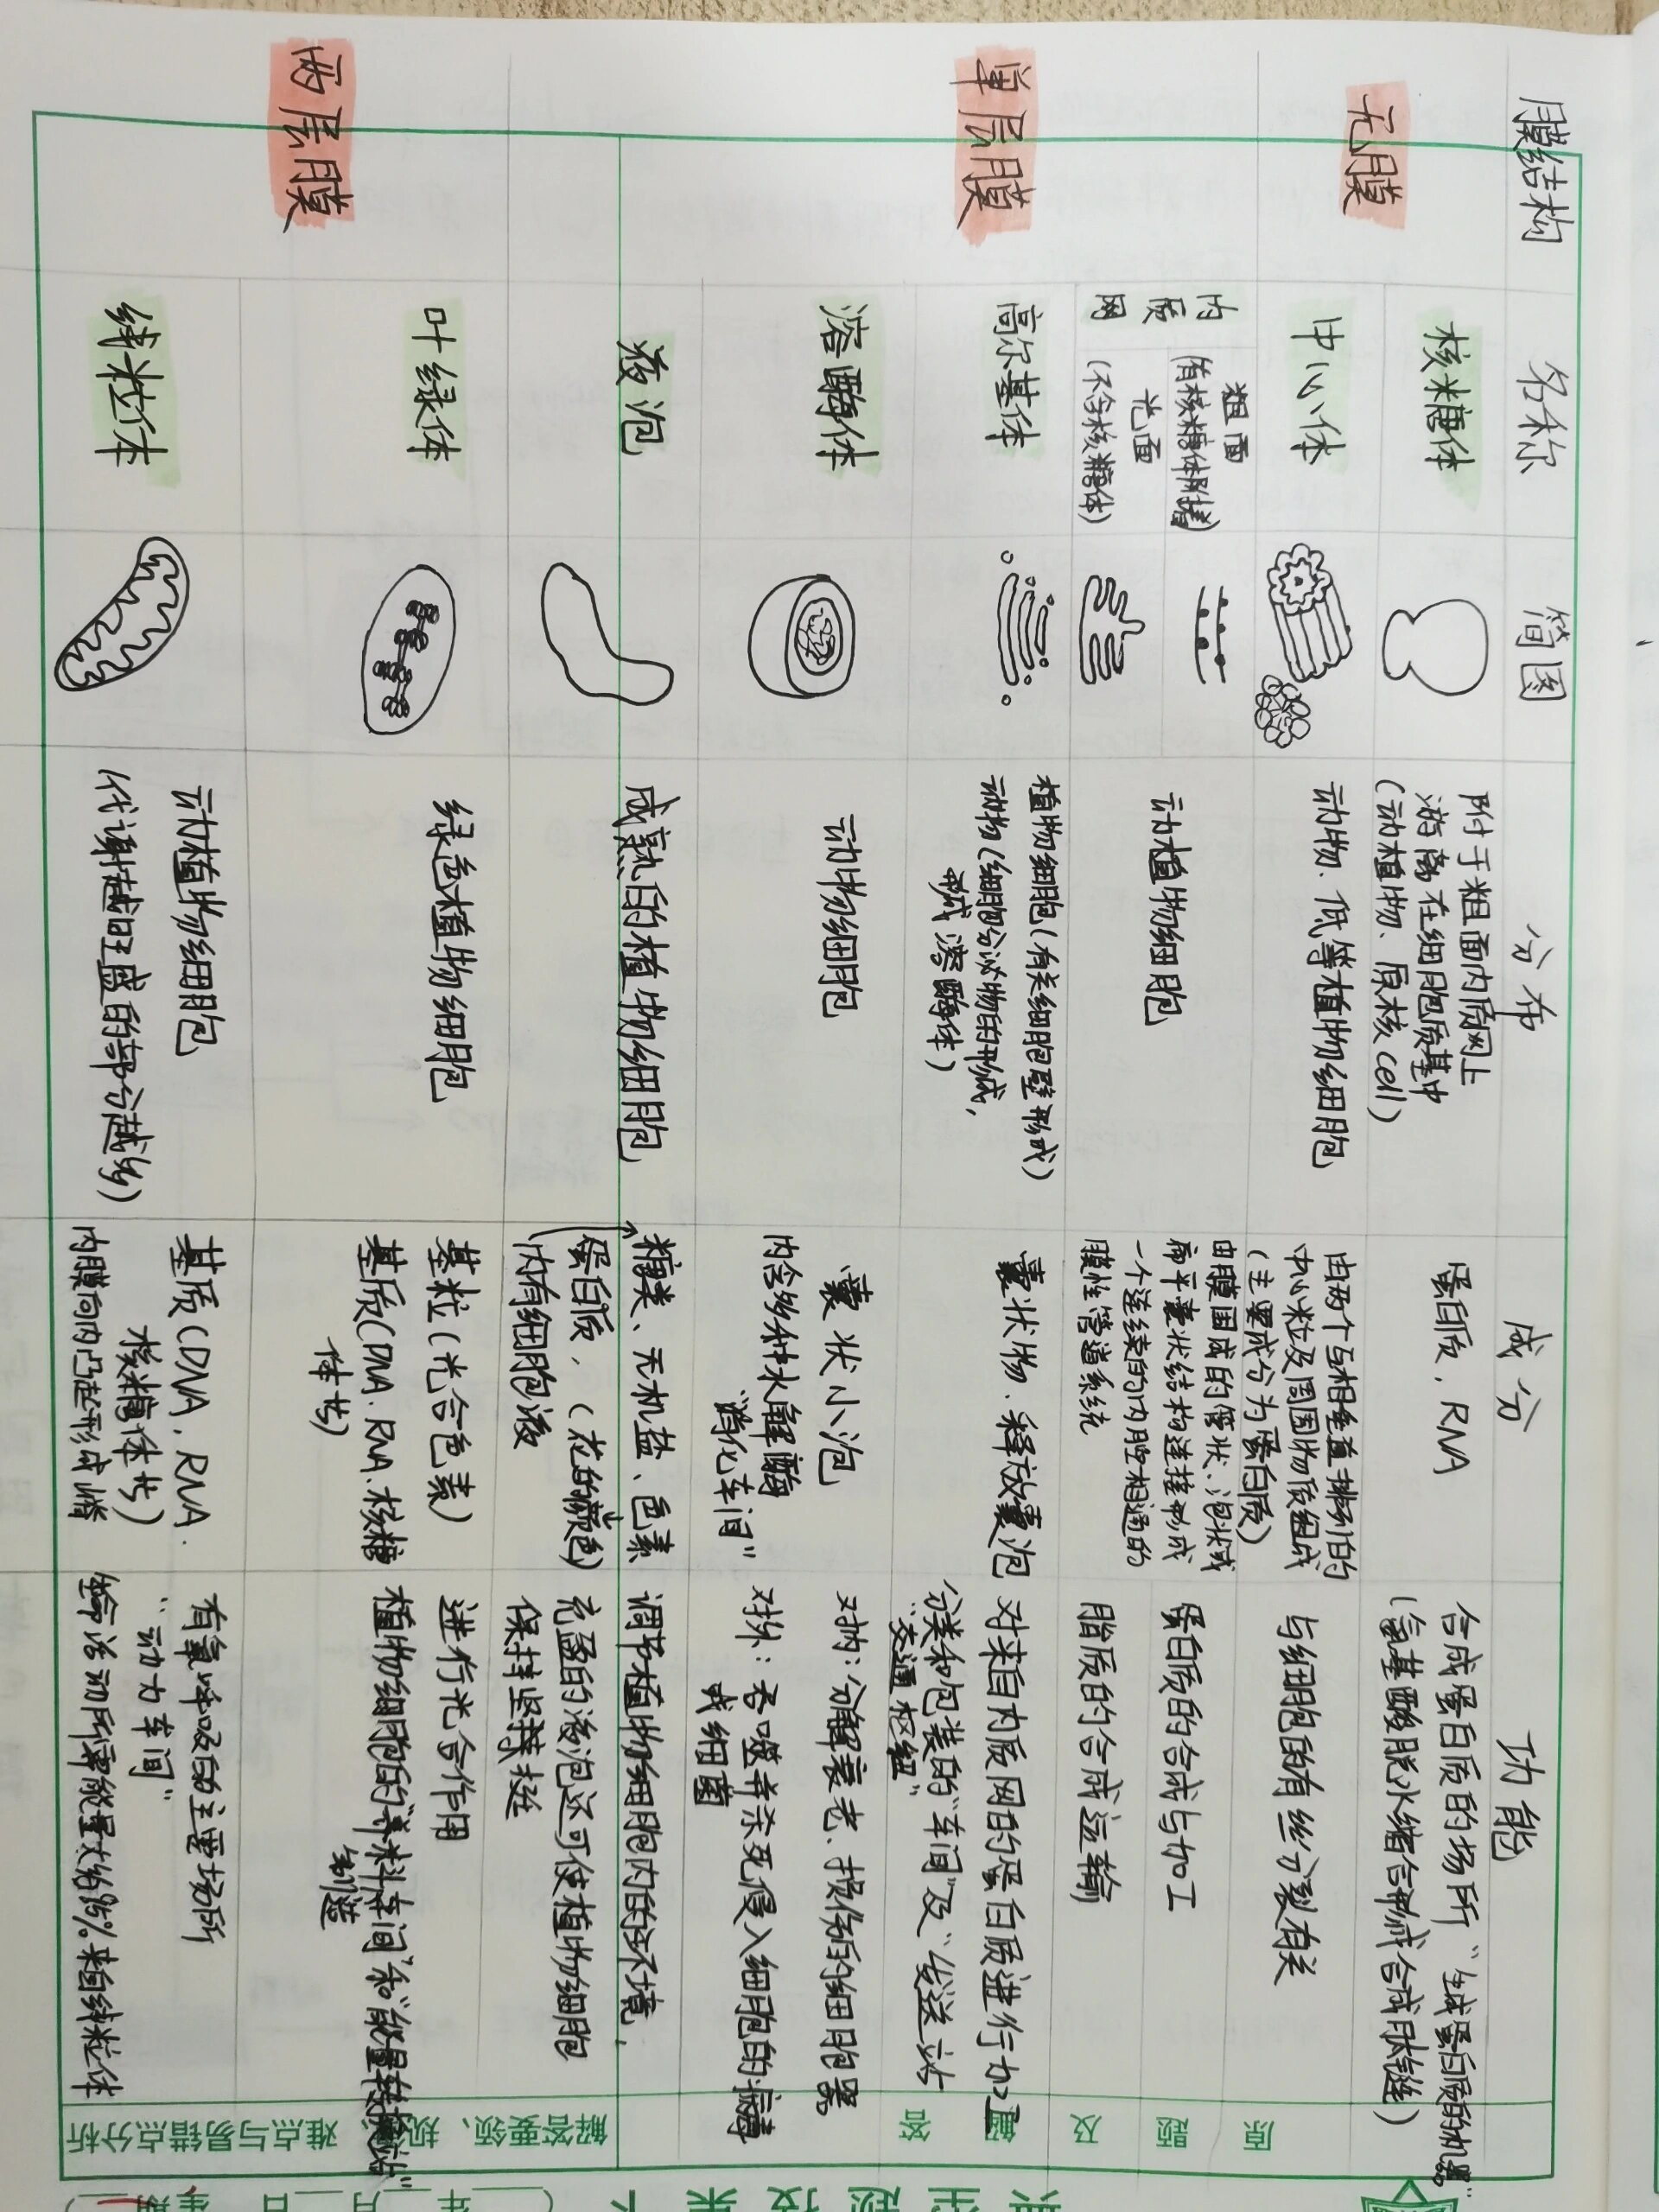 膜结构 名称 简图 分布 成分 功能
无膜
核糖体
附于粗面内质网上
游离在细胞质基中
(动植物、原核cell)
蛋白质，RNA
合成蛋白质的场所 "生成蛋白质的机器"
(氨基酸脱水缩合形成合成肽链)
中心体
动物、低等植物细胞
由两个互相垂直排列的
中心粒及周围物质组成
(主要成分为蛋白质)
与细胞的有丝分裂有关
单层膜
内质网
粗面
(有核糖体附着)
光面
(不含核糖体)
动植物细胞
由膜围成的管状、泡状或
扁平囊状结构连接形成
一个连续的内腔相通的
膜性管道系统
蛋白质的合成与加工
脂质的合成运输
高尔基体
植物细胞(有关细胞壁形成)
动物(细胞分泌物的形成，
形成溶酶体)
囊状物、释放囊泡
对来自内质网的蛋白质进行加工
分类和包装的"车间"及"发送站"
"交通枢纽"
溶酶体
动物细胞
囊状小泡
内含多种水解酶
"消化车间"
对内：分解衰老、损伤的细胞器
对外：吞噬并杀死侵入细胞的病毒
或细菌
液泡
成熟的植物细胞
糖类、无机盐、色素
蛋白质，(花的颜色)
内有细胞液
调节植物细胞内的环境，
充盈的液泡还可使植物细胞
保持坚挺
两层膜
叶绿体
绿色植物细胞
基粒(光合色素)
基质(DNA、RNA、核糖
体等)
进行光合作用
植物细胞的"养料车间"和"能量转换站"
制造
线粒体
动植物细胞
(代谢越旺盛的部分越多)
基质(DNA，RNA、
核糖体等)
内膜向内凸起形成嵴
有氧呼吸的主要场所
"动力车间"
生命活动所需能量大约95%来自线粒体
原题及解答
解答要领、规律、难点与易错点分析
年 月 日 星期